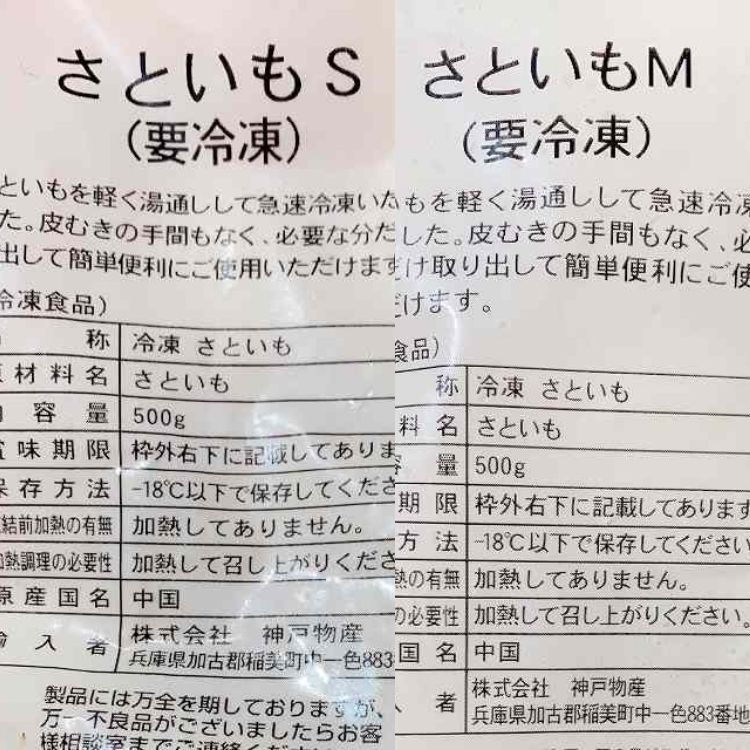 さといもS
(要冷凍)
といもを軽く湯通しして急速冷凍いた
た。皮むきの手間もなく、必要な分だ
出して簡単便利にご使用いただけます
冷凍食品)
称 冷凍 さといも
原材料名 さといも
内容量 500g
賞味期限 枠外右下に記載してありま
保存方法 -18℃以下で保存してくださ
結前加熱の有無 加熱してありません。
加熱調理の必要性 加熱して召し上がりくださ
原産国名 中国
輸入者 株式会社 神戸物産
兵庫県加古郡稲美町中一色883
製品には万全を期しておりますが、
万一不良品がございましたらお客
様相談室までご連絡ください
さといもM
(要冷凍)
もを軽く湯通しして急速冷凍
した。皮むきの手間もなく、必
け取り出して簡単便利にご使
けます。
食品)
称 冷凍 さといも
料名 さといも
容量 500g
期限 枠外右下に記載してあります
方法 -18℃以下で保存してください
熱の有無 加熱してありません。
の必要性 加熱して召し上がりください。
国名 中国
者 株式会社 神戸物産
兵庫県加古郡稲美町中一色883番地